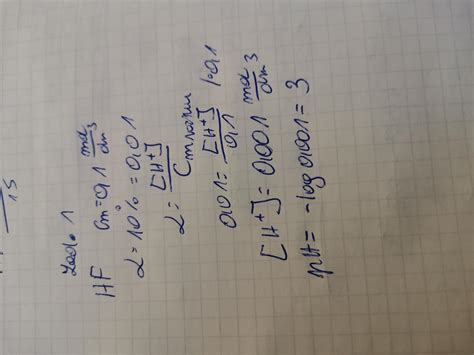 15
Zad. 1
HF Cm=0,1 mol/dm³
α=10%=0,01
α=[H⁺]/Cm
0,01=[H⁺]/0,1 |·0,1
[H⁺]=0,001 mol/dm³
pH=-log0,001=3